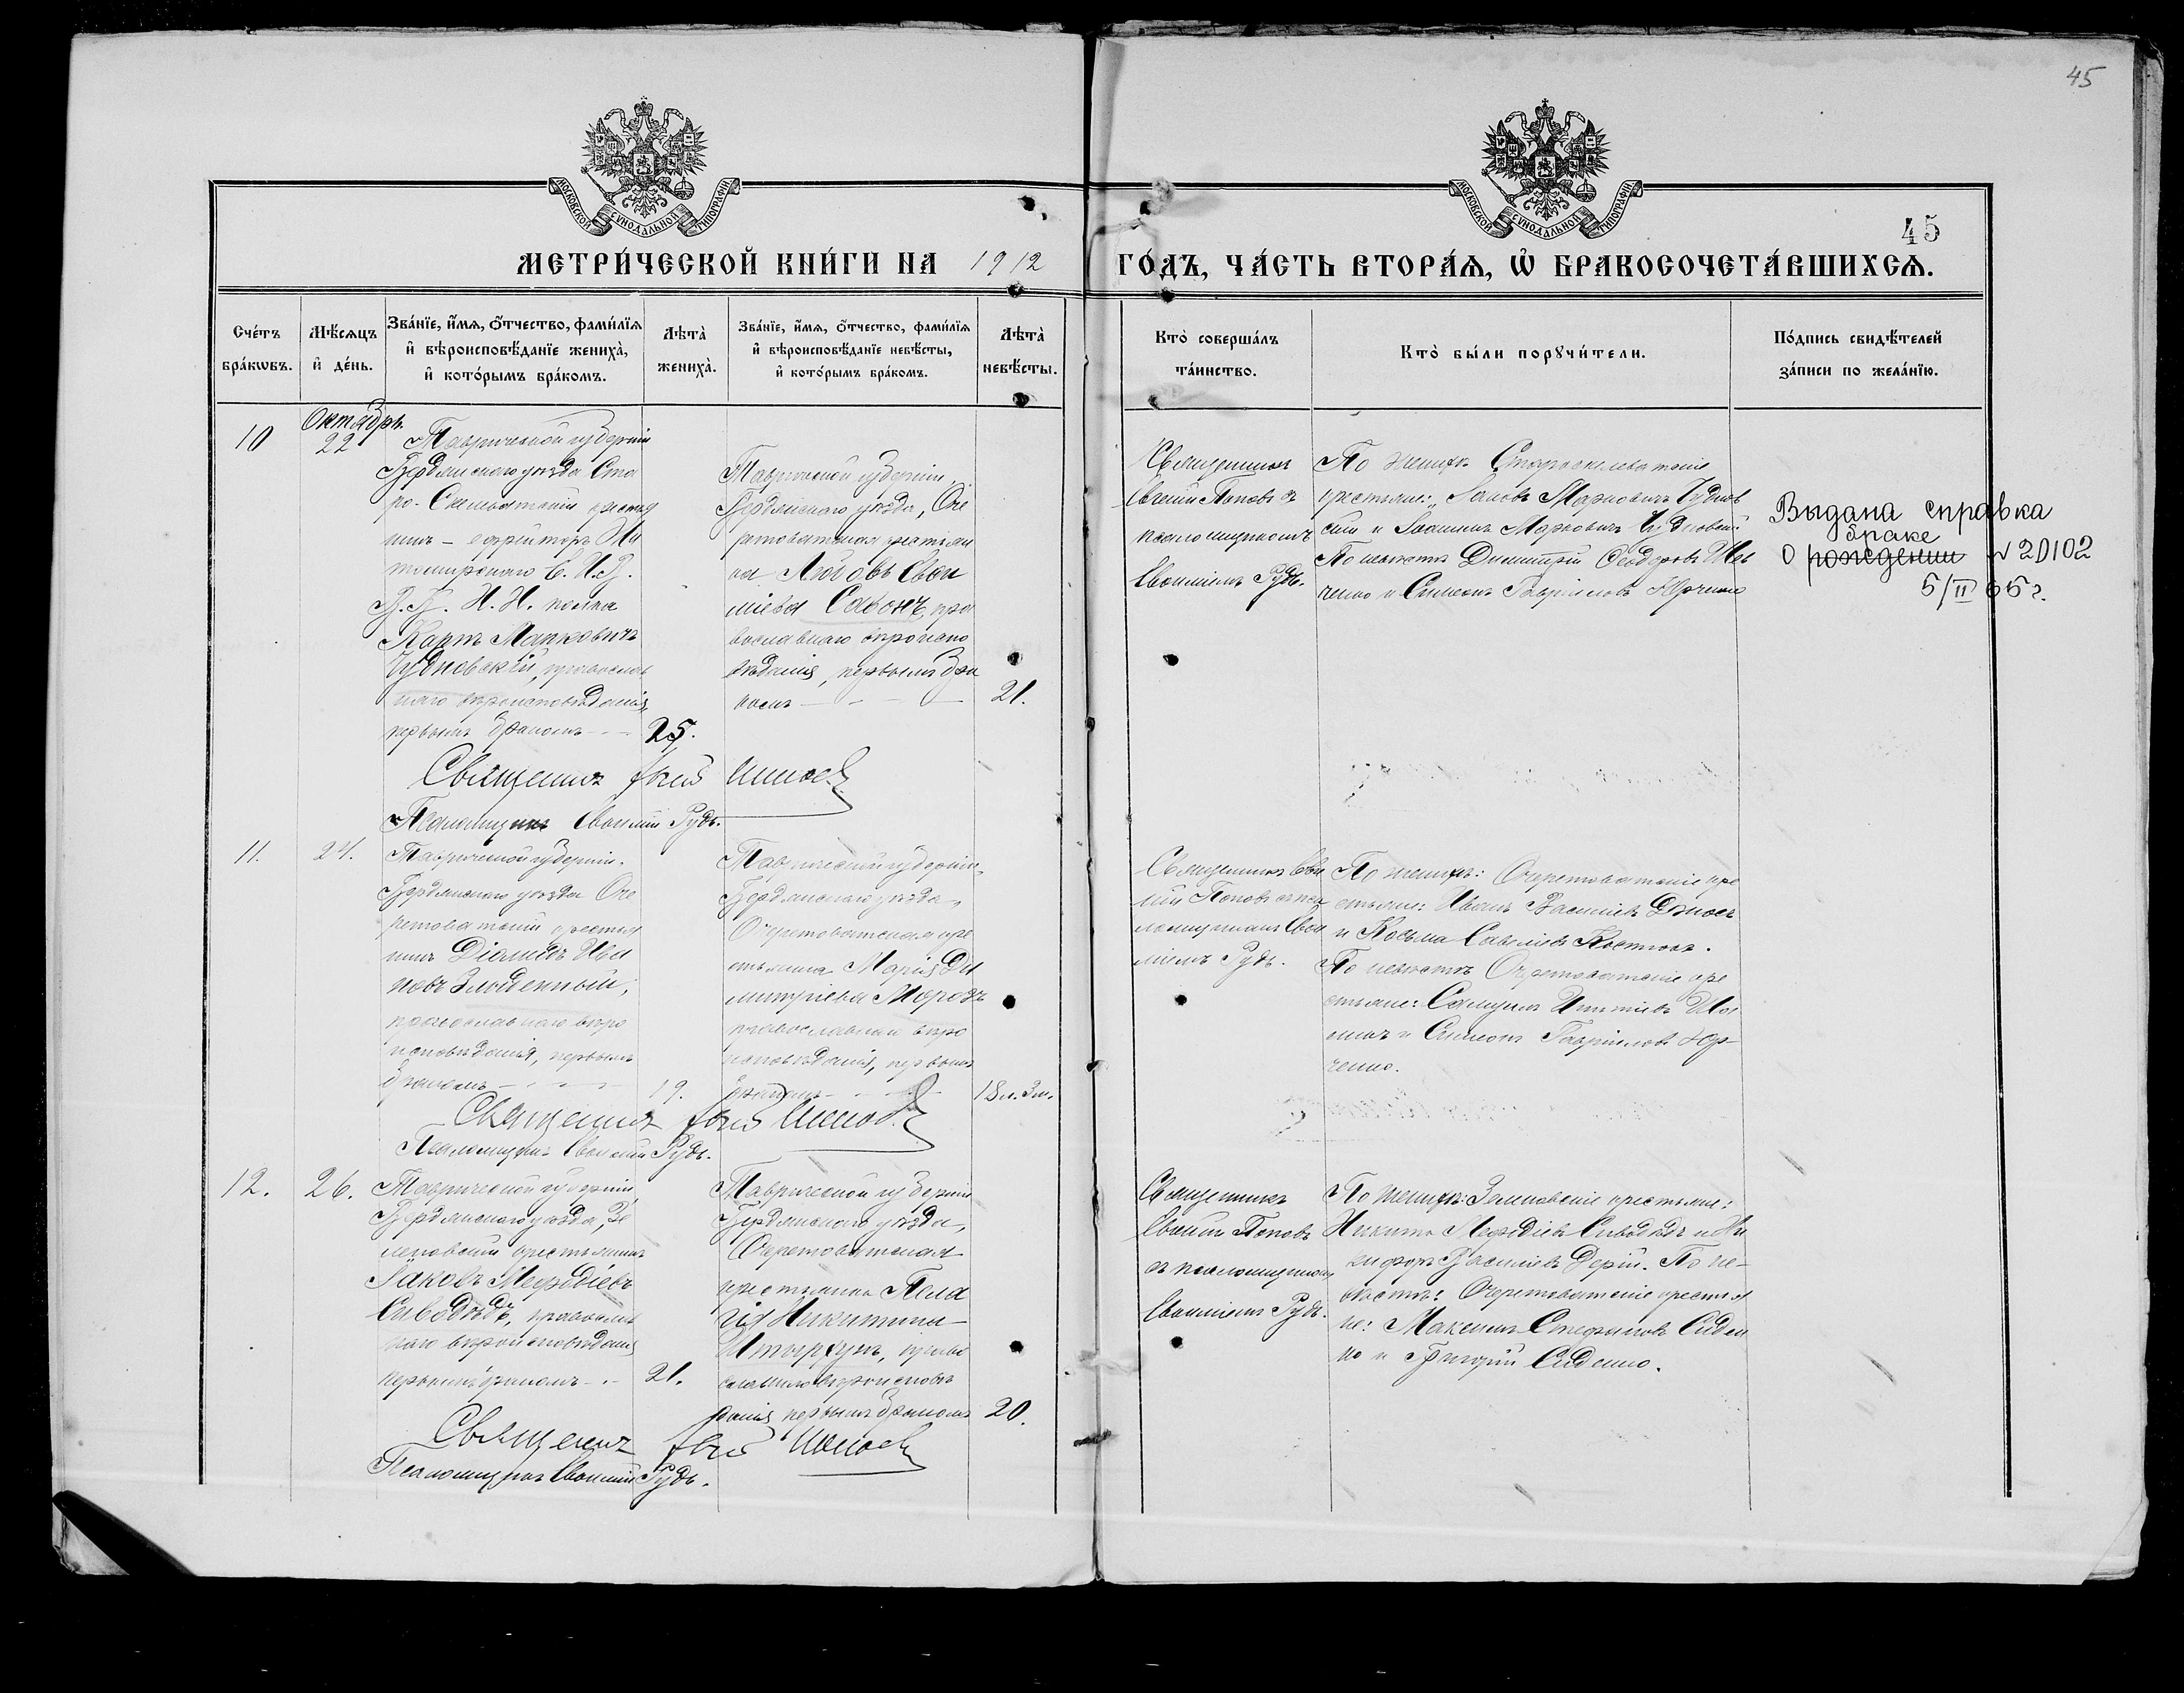 45
МОСКОВСКОЙ СѴНОДАЛЬНОЙ ТИПОГРАФІИ
МОСКОВСКОЙ СѴНОДАЛЬНОЙ ТИПОГРАФІИ
45
МЕТРИ́ЧЕСКОЙ КНИ́ГИ НА 1912 ГО́ДЪ, ЧА́СТЬ ВТОРА́Ѧ, Ѡ҆ БРАКОСОЧЕТА́ВШИХСѦ.
Сче́тъ бра́кѡвъ.
Мѣ́сѧцъ и҆ де́нь.
Зва́нїе, и҆́мѧ, ѻ҆́тчество, фами́лїѧ
и҆ вѣроисповѣ́данїе жениха̀,
и҆ кото́рымъ бра́комъ.
Лѣта̀ жениха̀.
Зва́нїе, и҆́мѧ, ѻ҆́тчество, фами́лїѧ
и҆ вѣроисповѣ́данїе невѣ́сты,
и҆ кото́рымъ бра́комъ.
Лѣта̀ невѣ́сты.
Кто̀ соверша́лъ та́инство.
Кто̀ бы́ли порꙋчи́тели.
По́дпись свидѣ́телей за́писи по жела́нїю.
10
Октябрь
22
Таврической губерніи
Бердянскаго уѣзда Ста
ро-
крестья
нинъ - ефрейторъ
полка
Карпъ Марковичъ
Чудновскій, православ
наго вѣроисповѣданія
первымъ бракомъ
25.
Таврической губерніи,
Бердянскаго уѣзда, Оче
ретоватская крестьян
ка Любовь
Савонъ, пра
вославнаго вѣроиспо
вѣданія, первымъ бра
комъ
21.
Священникъ
Евгеній Поповъ съ
псаломщикомъ
Рудь.
По женихѣ
крестьяне: Іаковъ Марковичъ Чуднов
скій и Іоакимъ Марковичъ Чудновскій
По невѣстѣ Димитрій Ѳеодоровъ
и Симеонъ Гавріиловъ Юрченко
Выдана справка
браке
о рождении № 20102
5/II 65 г.
Священникъ Поповъ
Псаломщикъ Рудь.
11.
24.
Таврической губерніи.
Бердянскаго уѣзда Оче
ретоватскій крестья
нинъ Діамидъ Ива
новъ Злыденный,
православнаго вѣро
исповѣданія, первымъ
бракомъ
19.
Таврической губерніи,
Бердянскаго уѣзда,
Очеретоватская кре
стьянка Марія Ди
митріева Морозъ
православнаго вѣро
исповѣданія, первымъ
бракомъ
18 л. 3 м.
Священникъ
Поповъ съ пса
ломщикомъ
Рудь.
По женихѣ: Очеретоватскіе кре
стьяне: Иванъ Василіевъ
и Косьма Савеліевъ Костюкъ.
По невѣстѣ Очеретоватскіе кре
стьяне: Самуилъ
и Симеонъ Гавріиловъ Юр-
ченко.
Священникъ Поповъ
Псаломщикъ Рудь.
12.
26.
Таврической губерніи,
Бердянскаго уѣзда, Зе
леновскій крестьянинъ
Іаковъ Меѳодіевъ
Сиводѣдъ, православ
наго вѣроисповѣданія
первымъ бракомъ
21.
Таврической губерніи
Бердянскаго уѣзда,
Очеретоватская
крестьянка Пела
гія Никитина
православнаго вѣроисповѣ
данія первымъ бракомъ
20.
Священникъ
Поповъ
съ псаломщикомъ
Рудь.
По женихѣ: Зеленовскіе крестьяне:
Никита Меѳодіевъ Сиводѣдъ и Ни
кифоръ Василіевъ Дерій. По не-
вѣстѣ: Очеретоватскіе крестья
не: Максимъ Стефановъ Сиден
ко и Григорій Сиденко.
Священникъ Поповъ
Псаломщикъ Рудь.